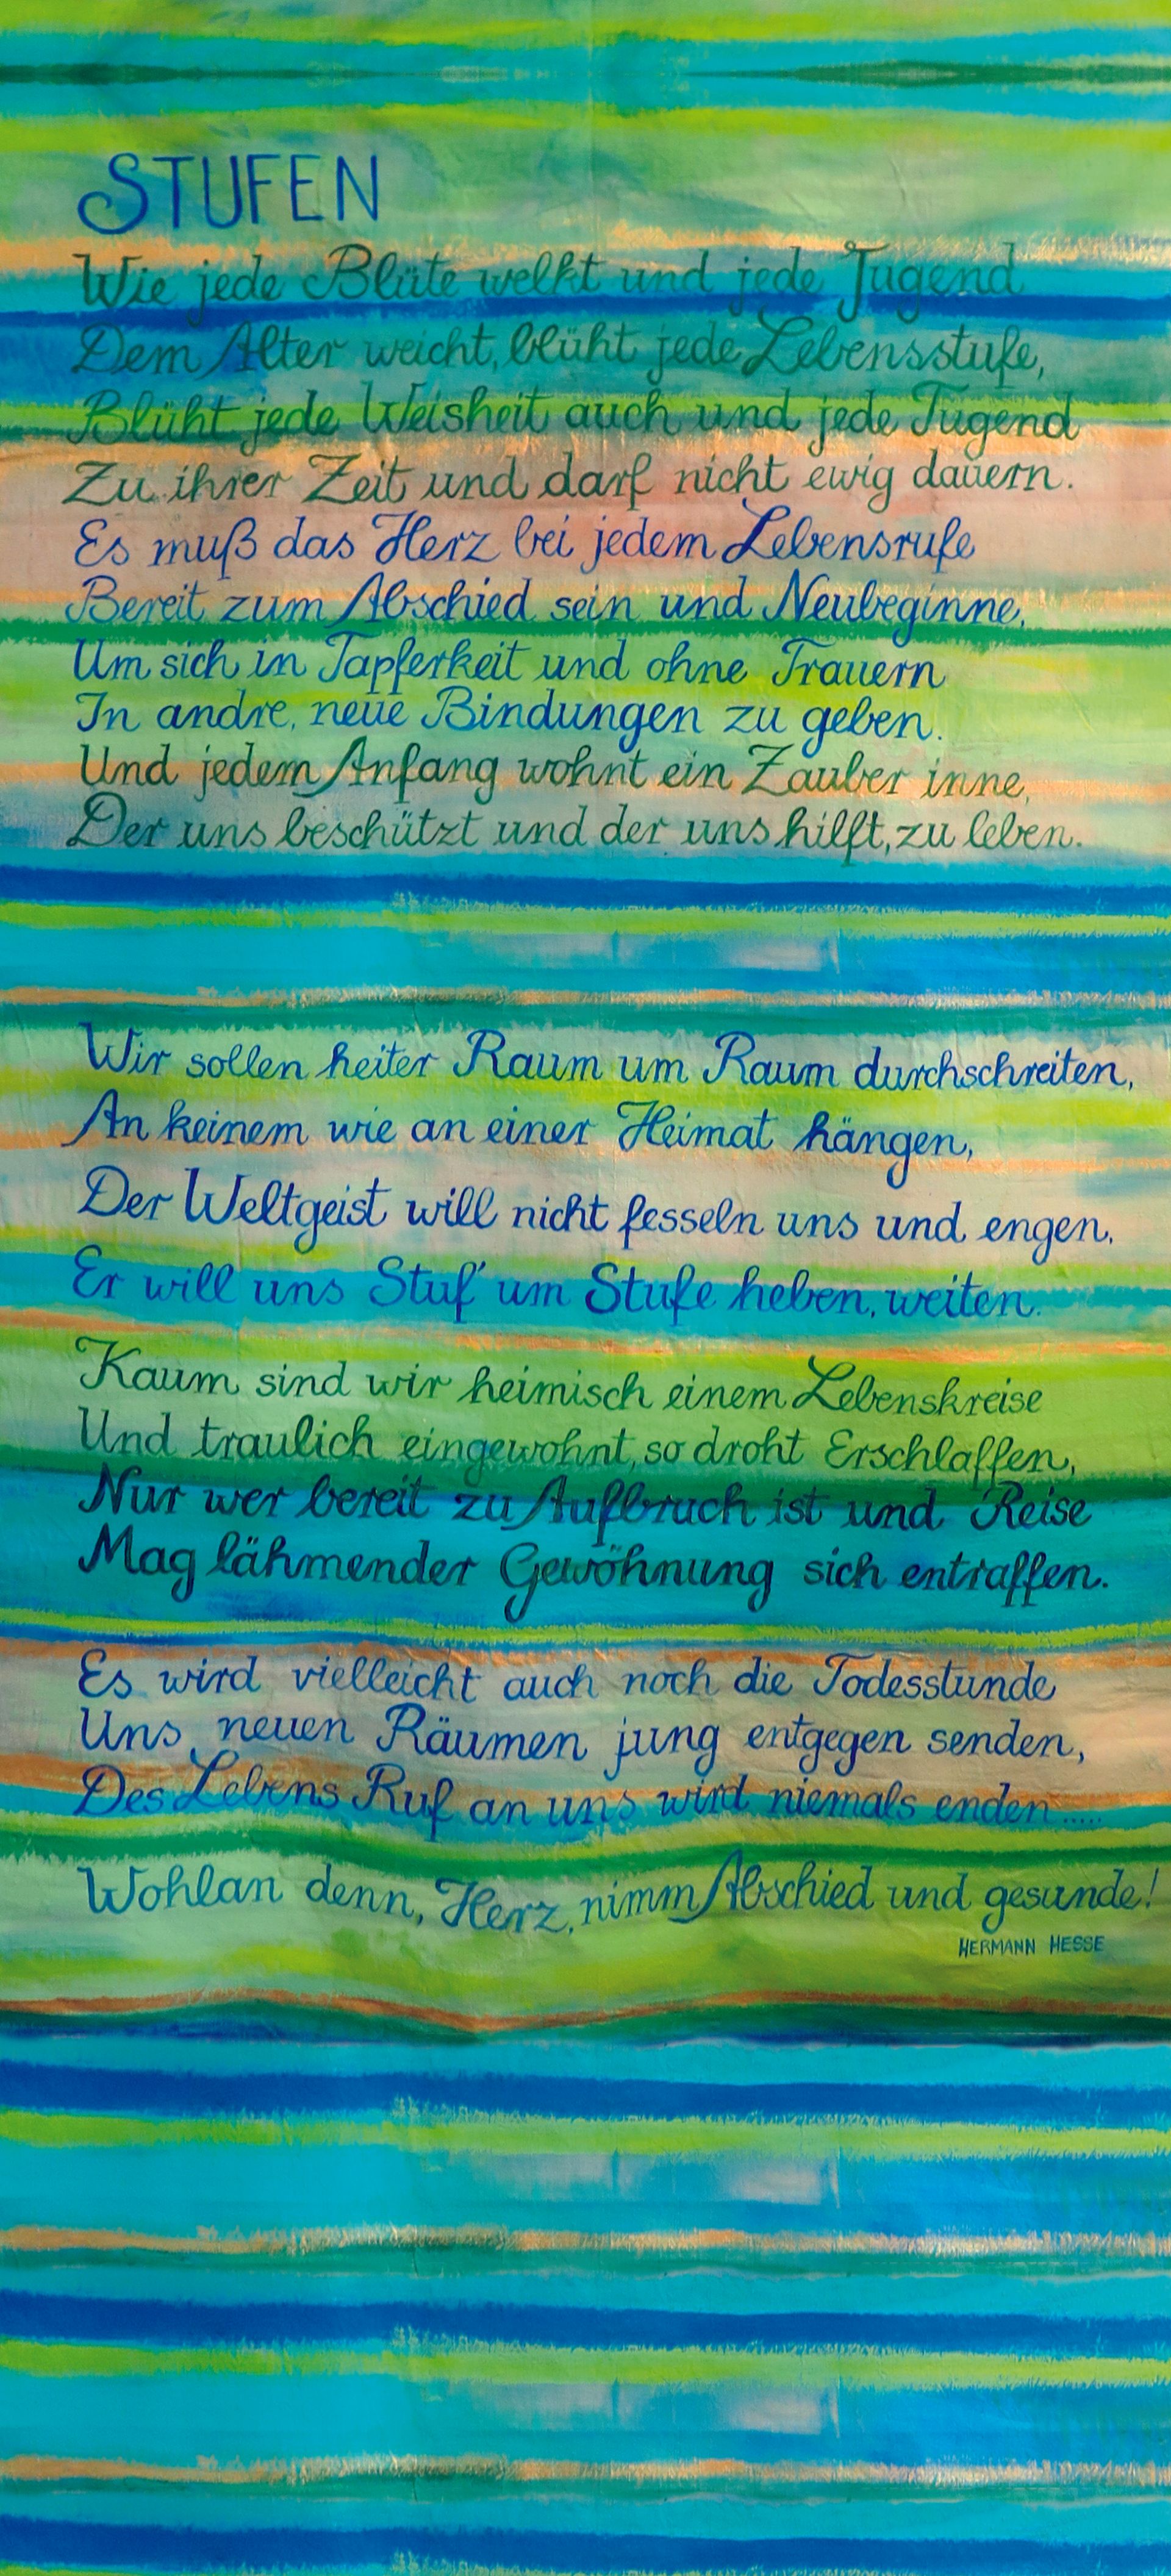 STUFEN
Wie jede Blüte welkt und jede Jugend
Dem Alter weicht, blüht jede Lebensstufe,
Blüht jede Weisheit auch und jede Tugend
Zu ihrer Zeit und darf nicht ewig dauern.
Es muß das Herz bei jedem Lebensrufe
Bereit zum Abschied sein und Neubeginne,
Um sich in Tapferkeit und ohne Trauern
In andre, neue Bindungen zu geben.
Und jedem Anfang wohnt ein Zauber inne,
Der uns beschützt und der uns hilft, zu leben.
Wir sollen heiter Raum um Raum durchschreiten,
An keinem wie an einer Heimat hängen,
Der Weltgeist will nicht fesseln uns und engen,
Er will uns Stuf' um Stufe heben, weiten.
Kaum sind wir heimisch einem Lebenskreise
Und traulich eingewohnt, so droht Erschlaffen,
Nur wer bereit zu Aufbruch ist und Reise
Mag lähmender Gewöhnung sich entraffen.
Es wird vielleicht auch noch die Todesstunde
Uns neuen Räumen jung entgegen senden,
Des Lebens Ruf an uns wird niemals enden.....
Wohlan denn, Herz, nimm Abschied und gesunde!
HERMANN HESSE